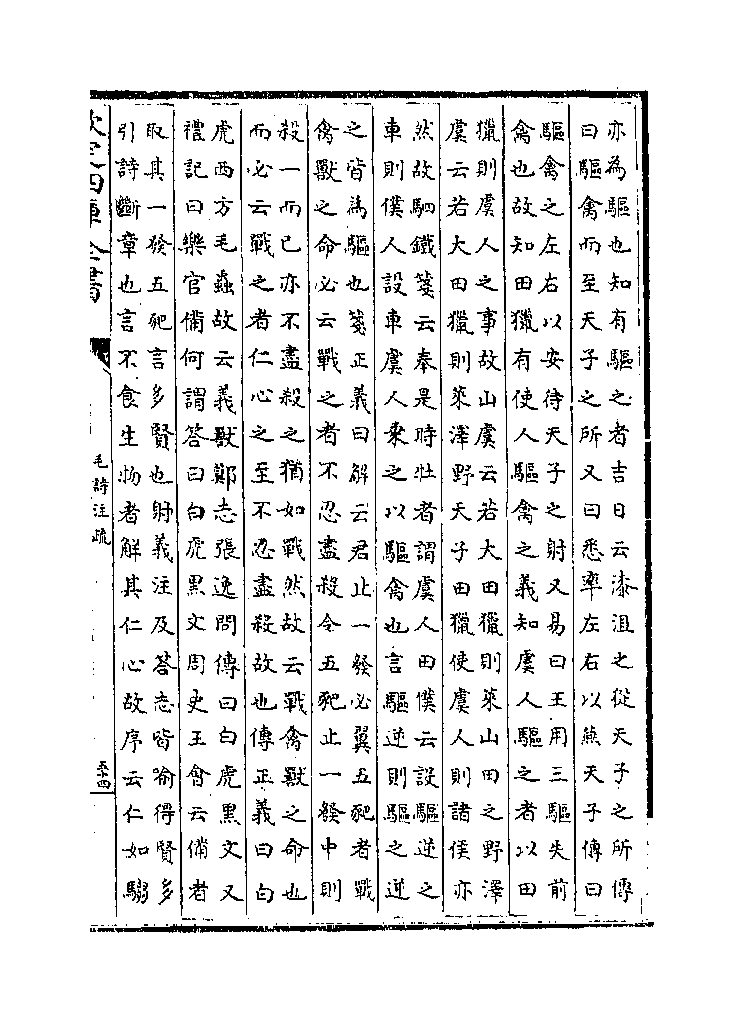 亦為驅也知有驅之者吉日云漆沮之從天子之所傳
曰驅禽而至天子之所又曰悉率左右以燕天子傳曰
驅禽之左右以安待天子之射又易曰王用三驅失前
禽也故知田獵有使人驅禽之義知虞人驅之者以田
獵則虞人之事故山虞云若大田獵則萊山田之野澤
虞云若大田獵則萊澤野天子田獵使虞人則諸侯亦
然故駟鐵箋云奉是時牡者謂虞人田僕云設驅逆之
車則僕人設車虞人乘之以驅禽也言驅逆則驅之逆
之皆為驅也箋正義曰解云君止一發必翼五豝者戰
禽獸之命必云戰之者不忍盡殺令五豝止一發中則
殺一而已亦不盡殺之猶如戰然故云戰禽獸之命也
而必云戰之者仁心之至不忍盡殺故也傳正義曰白
虎西方毛蟲故云義獸鄭志張逸問傳曰白虎黑文又
禮記曰樂官備何謂答曰白虎黒文周史王會云備者
取其一發五豝言多賢也射義注及答志皆喻得賢多
引詩斷章也言不食生物者解其仁心故序云仁如騶
欽定四庫全書
毛詩注疏
五十四